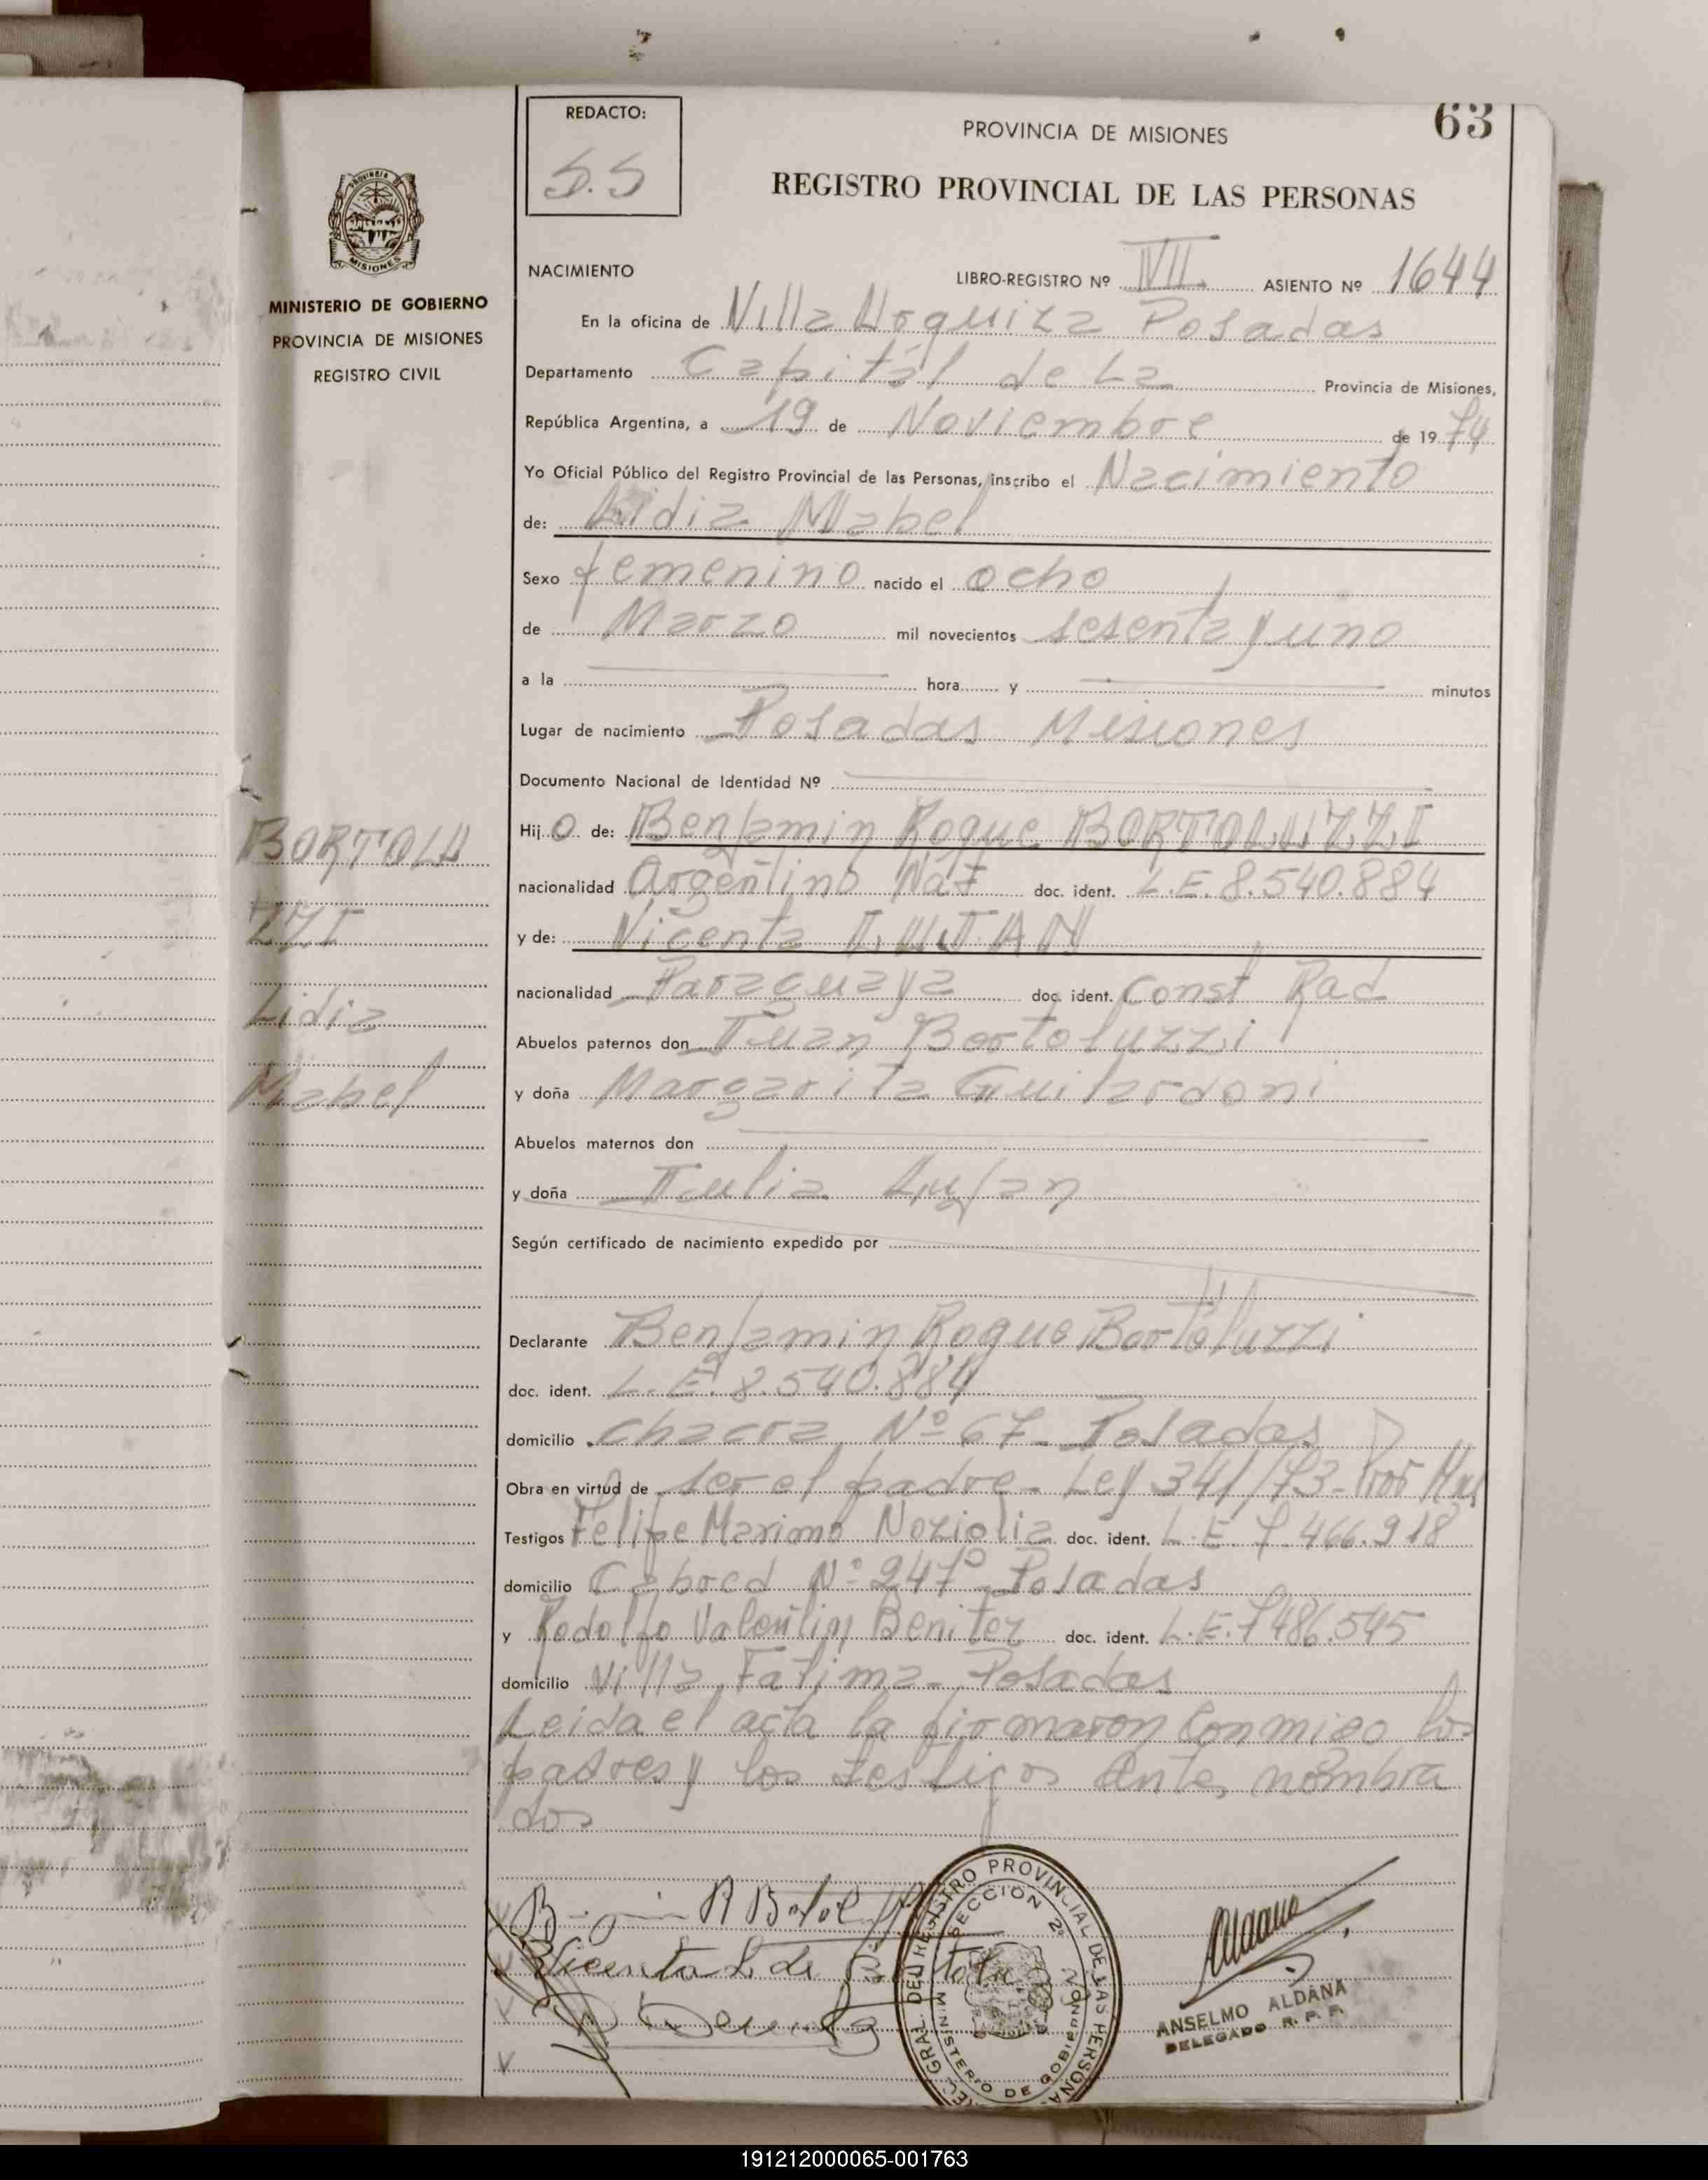 REDACTO:
S.S
PROVINCIA DE MISIONES
63
REGISTRO PROVINCIAL DE LAS PERSONAS
MINISTERIO DE GOBIERNO
PROVINCIA DE MISIONES
REGISTRO CIVIL
NACIMIENTO LIBRO-REGISTRO Nº VII. ASIENTO Nº 1644
En la oficina de Villa Urquiza Posadas
Departamento Capitál de La Provincia de Misiones,
República Argentina, a 19 de Noviembre de 19 74
Yo Oficial Público del Registro Provincial de las Personas, inscribo el Nacimiento
de: Lidia Mabel
Sexo femenino nacido el ocho
de Marzo mil novecientos sesenta y uno
a la hora y minutos
Lugar de nacimiento Posadas Misiones
Documento Nacional de Identidad Nº
Hijo de: Benjamin Roque BORTOLUZZI
nacionalidad Argentino Nat doc. ident. L.E. 8.540.884
y de: Vicenta LUJAN
nacionalidad Paraguaya doc. ident. Const Rad
Abuelos paternos don Juan Bortoluzzi
y doña Margarita Guilardoni
Abuelos maternos don
y doña Julia Lujan
Según certificado de nacimiento expedido por
Declarante Benjamin Roque Bortoluzzi
doc. ident. L.E. 8.540.884
domicilio chacra Nº 67- Posadas
Obra en virtud de ser el padre- Ley 341/73-
Testigos Felipe Maximo doc. ident. L.E. 7.466.918
domicilio Cabred Nº 247º Posadas
y Rodolfo Valentin Benitez doc. ident. L.E. 7486.545
domicilio Villa Fatima- Posadas
Leida el acta la firmaron conmigo los
padres y los testigos ante, nombra
dos
BORTOLU
ZZI
Lidia
Mabel
Vicenta L. de
REGISTRO PROVINCIAL DE LAS PERSONAS
SECCION 2ª
MINISTERIO DE GOBIERNO
ANSELMO ALDANA
DELEGADO R. P. P.
191212000065-001763